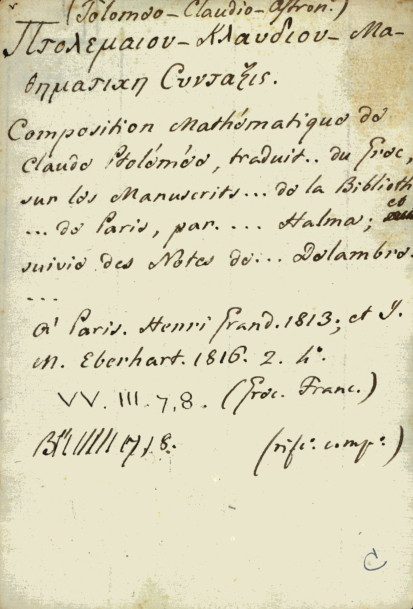 (Tolomeo-Claudio-Astron.)
Πτολεμαιου-Κλαυδιου-Μα-
θηματικη Συνταξις.
Composition Mathématique de
Claude Ptolémée, traduit.. du Grec,
sur les Manuscrits... de la Biblioth
... de Paris, par.... Halma; et
suivie des Notes de... Delambre.
...
A' Paris. Henri Grand. 1813; et J.
M. Eberhart. 1816. 2. 4°.
VV. III. 7, 8. (Grec. Franc.)
7, 8. (rifc. comp.)
C